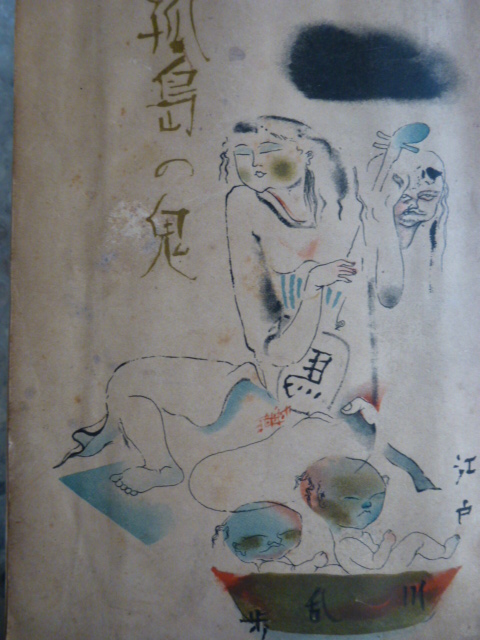 孤島の鬼
馬
江戸
川乱歩